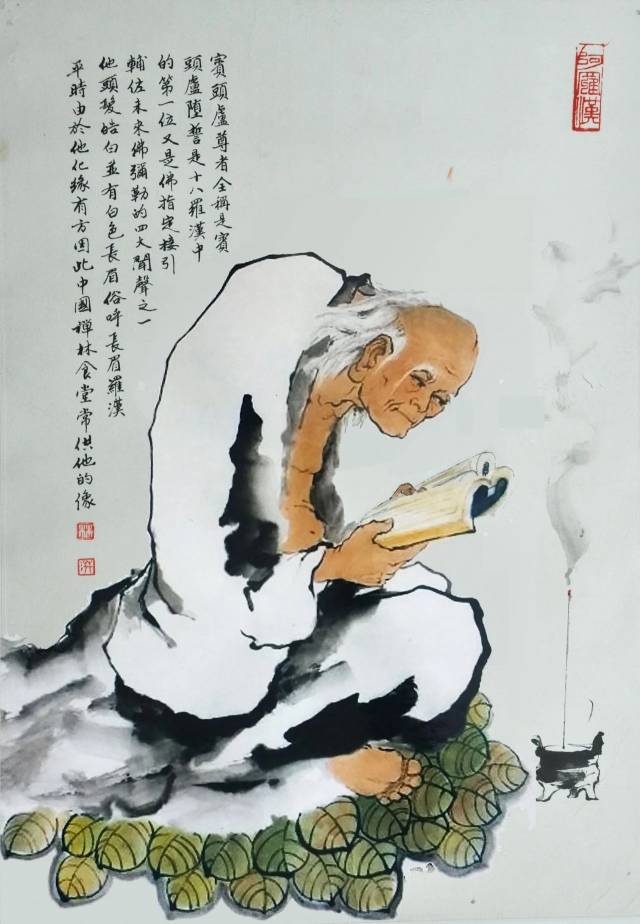 阿羅漢
賓頭盧尊者全稱是賓
頭盧墮誓是十八羅漢中
的第一位又是佛指定接引
輔佐未來佛彌勒的四大聞聲之一
他頭髮皓白並有白色長眉俗呼長眉羅漢
平時由於他化緣有方因此中國禪林食堂常供他的像
林